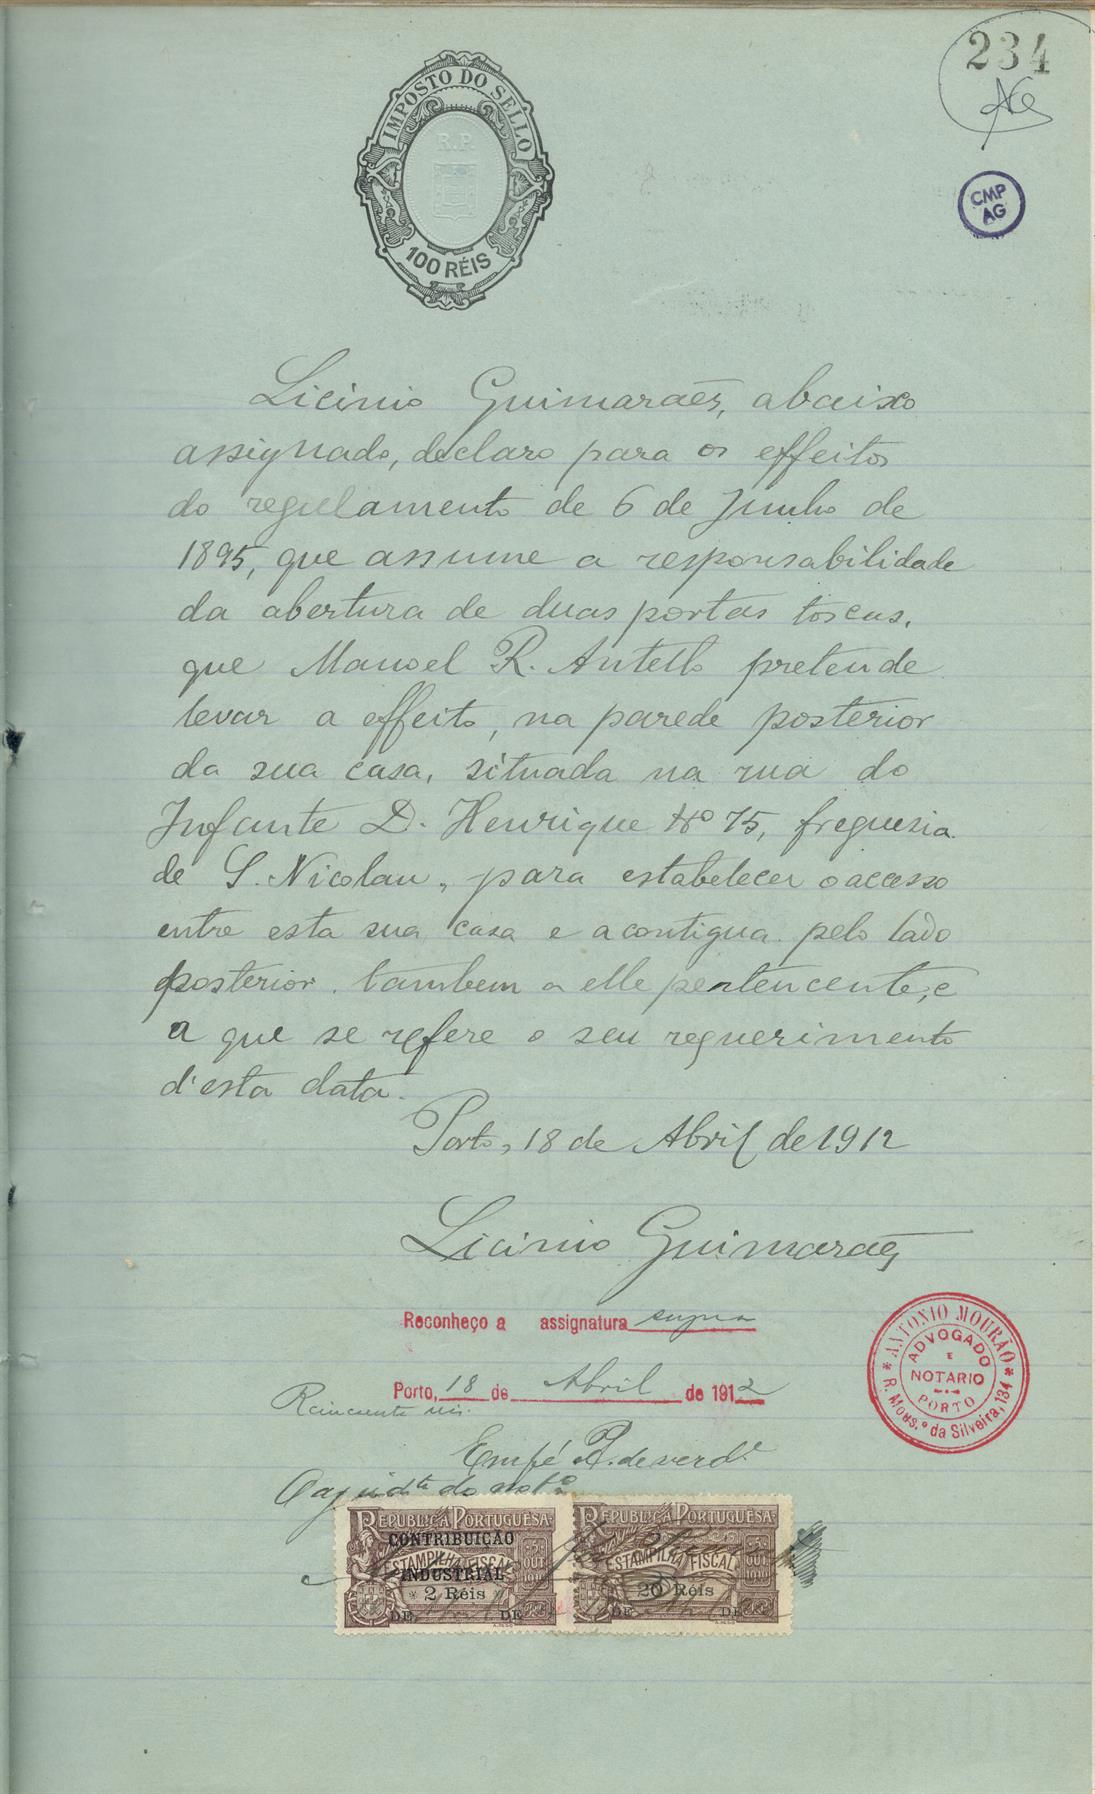 234
IMPOSTO DO SELLO
R.P.
100 RÉIS
CMP
AG
Licinio Guimarães, abaixo
assignado, declaro para os effeitos
do regulamento de 6 de Junho de
1895, que assume a responsabilidade
da abertura de duas portas toscas,
que Manoel R. Antello pretende
levar a effeito, na parede posterior
da sua casa, situada na rua do
Infante D. Henrique Nº 75, freguesia
de S. Nicolau, para estabelecer o acesso
entre esta sua casa e a contigua pelo lado
posterior, tambem a elle pertencente, e
a que se refere o seu requerimento
d'esta data.
Porto, 18 de Abril de 1912
Licinio Guimarães
Reconheço a assignatura supra
Porto, 18 de Abril de 1912
Rcincoenta reis.
Em fé R. de verd.e
O ajud.te do not.o
ANTONIO MOURÃO
ADVOGADO
E
NOTARIO
PORTO
R. Mous.º da Silveira, 134
REPUBLICA PORTUGUESA
CONTRIBUIÇÃO
ESTAMPILHA FISCAL
INDUSTRIAL
2 Réis
5 OUT 1910
DE DE
REPUBLICA PORTUGUESA
ESTAMPILHA FISCAL
20 Réis
5 OUT 1910
DE DE